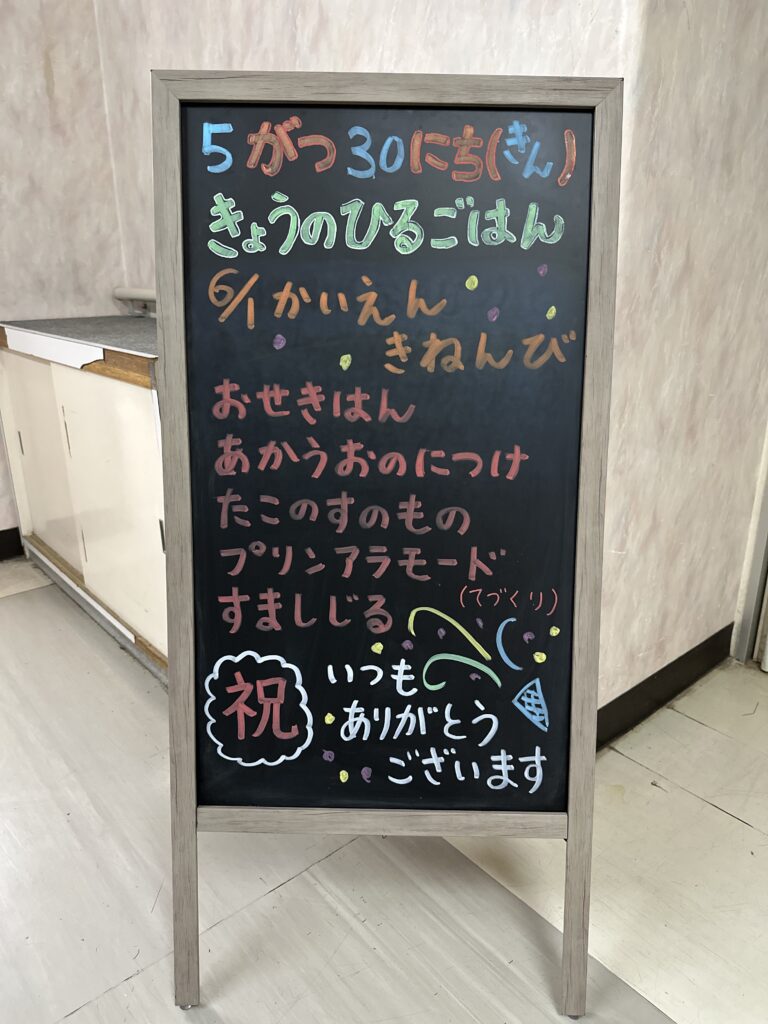 5がつ30にち(きん)
きょうのひるごはん
6/1かいえん
きねんび
おせきはん
あかうおのにつけ
たこのすのもの
プリンアラモード
(てづくり)
すましじる
祝
いつも
ありがとう
ございます